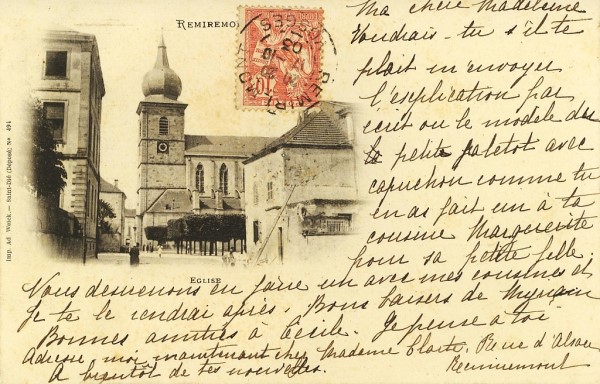 REMIREMO
EGLISE
Imp. Ad. Weick. — Saint-Dié (Déposé) No. 491
10
VOSGES
Ma chère Madeleine
Voudrais-tu s'il te
plait m'envoyer
l'explication par
écrit ou le modèle de
la petite paletot avec
capuchon comme tu
en as fait un à ta
cousine Marguerite
pour sa petite fille
Nous desirerions en faire un avec mes cousines et
Je te le rendrai après. Bons baisers de
Bonnes amitiés à Cécile. Je pense à toi
Adresse moi maintenant chez Madame Rue d'Alsace
Remiremont
A bientôt de tes nouvelles